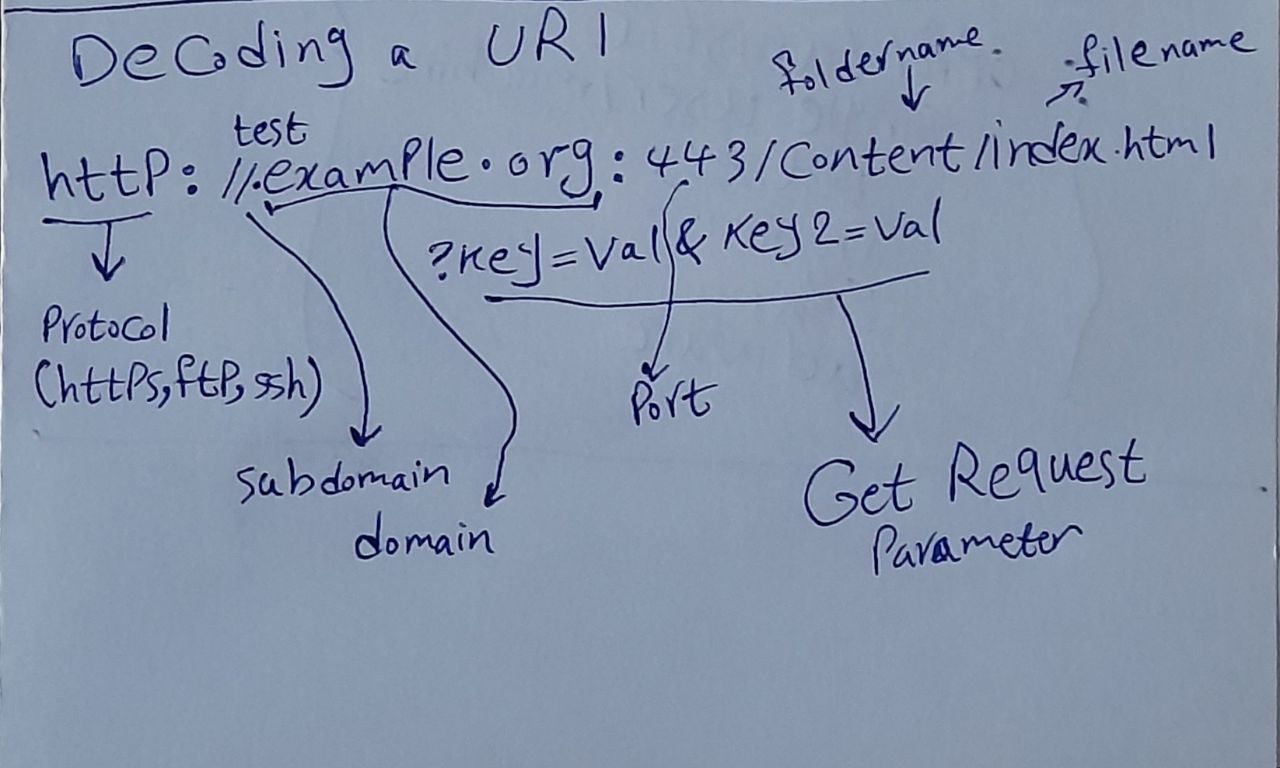 Decoding a URI
foldername.
filename
test
http://.example.org:443/Content/index.html
?key=Val&Key2=Val
Protocol
(https,ftp,ssh)
Port
subdomain
domain
Get Request
Parameter